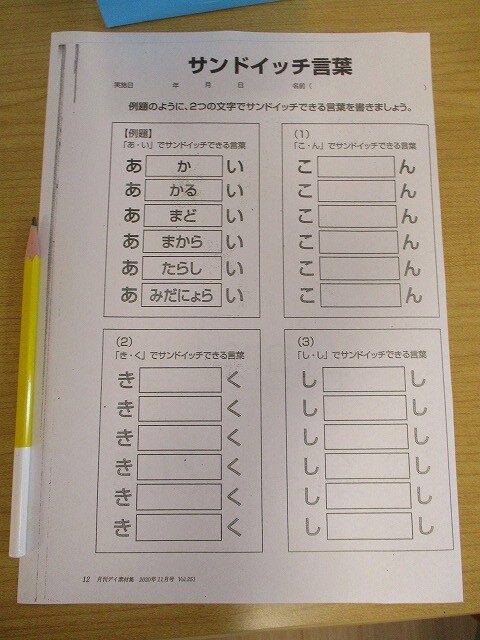 サンドイッチ言葉
実施日 年 月 日 名前( )
例題のように、2つの文字でサンドイッチできる言葉を書きましょう。
【例題】
「あ・い」でサンドイッチできる言葉
あ か い
あ かる い
あ まど い
あ まから い
あ たらし い
あ みだにょら い
(1)
「こ・ん」でサンドイッチできる言葉
こ ん
こ ん
こ ん
こ ん
こ ん
こ ん
(2)
「き・く」でサンドイッチできる言葉
き く
き く
き く
き く
き く
き く
(3)
「し・し」でサンドイッチできる言葉
し し
し し
し し
し し
し し
し し
12 月刊デイ素材集 2020年11月号 Vol.251